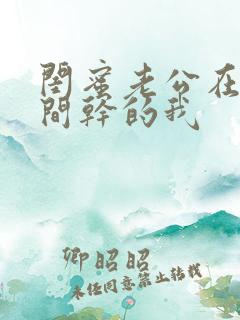 閨蜜老公在
間幹的我
卿昭昭
未經同意禁止轉載